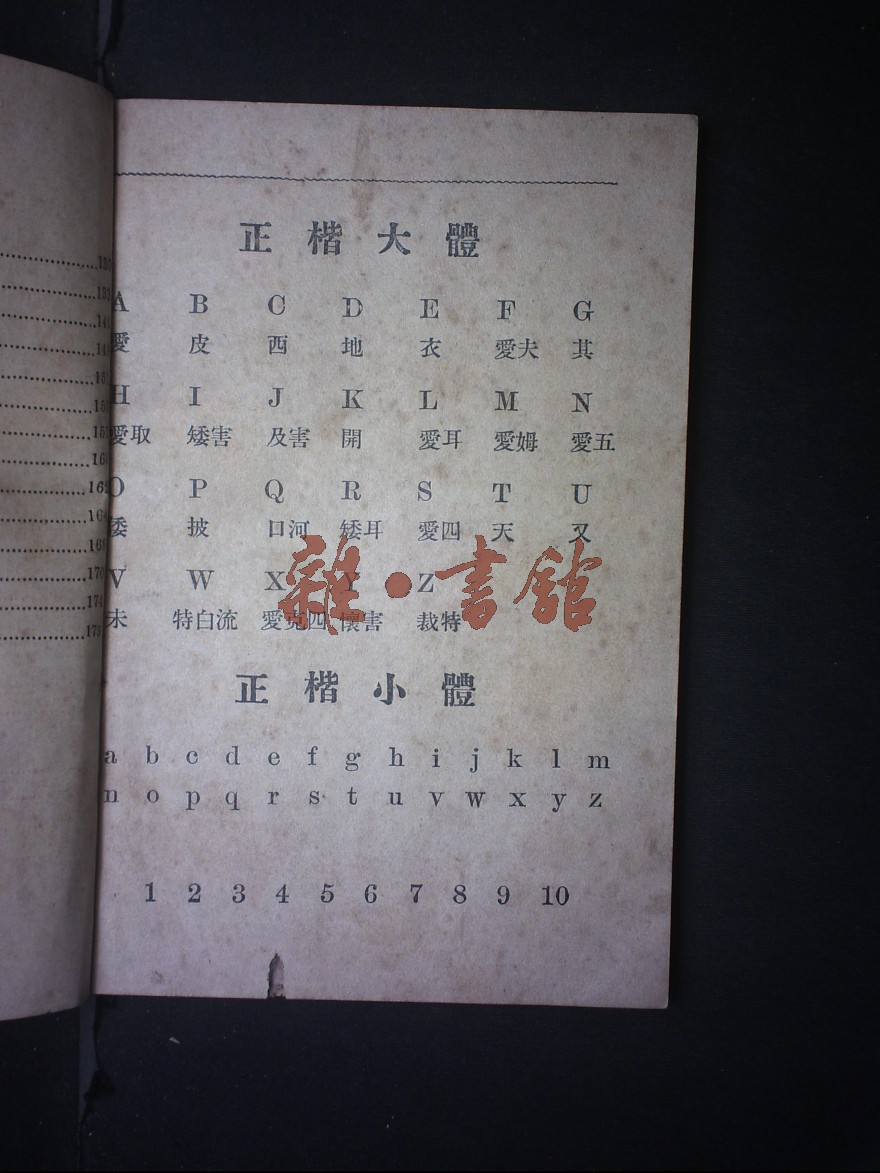 130
133
141
正楷大體
A B C D E F G
愛 皮 西 地 衣 愛夫 其
H I J K L M N
愛取 矮害 及害 開 愛耳 愛姆 愛五
O P Q R S T U
委 披 口河 矮耳 愛四 天 又
V W X Y Z
未 特白流 愛克四 懷害 裁特
雜·書館
162
164
168
170
174
正楷小體
a b c d e f g h i j k l m
n o p q r s t u v w x y z
1 2 3 4 5 6 7 8 9 10